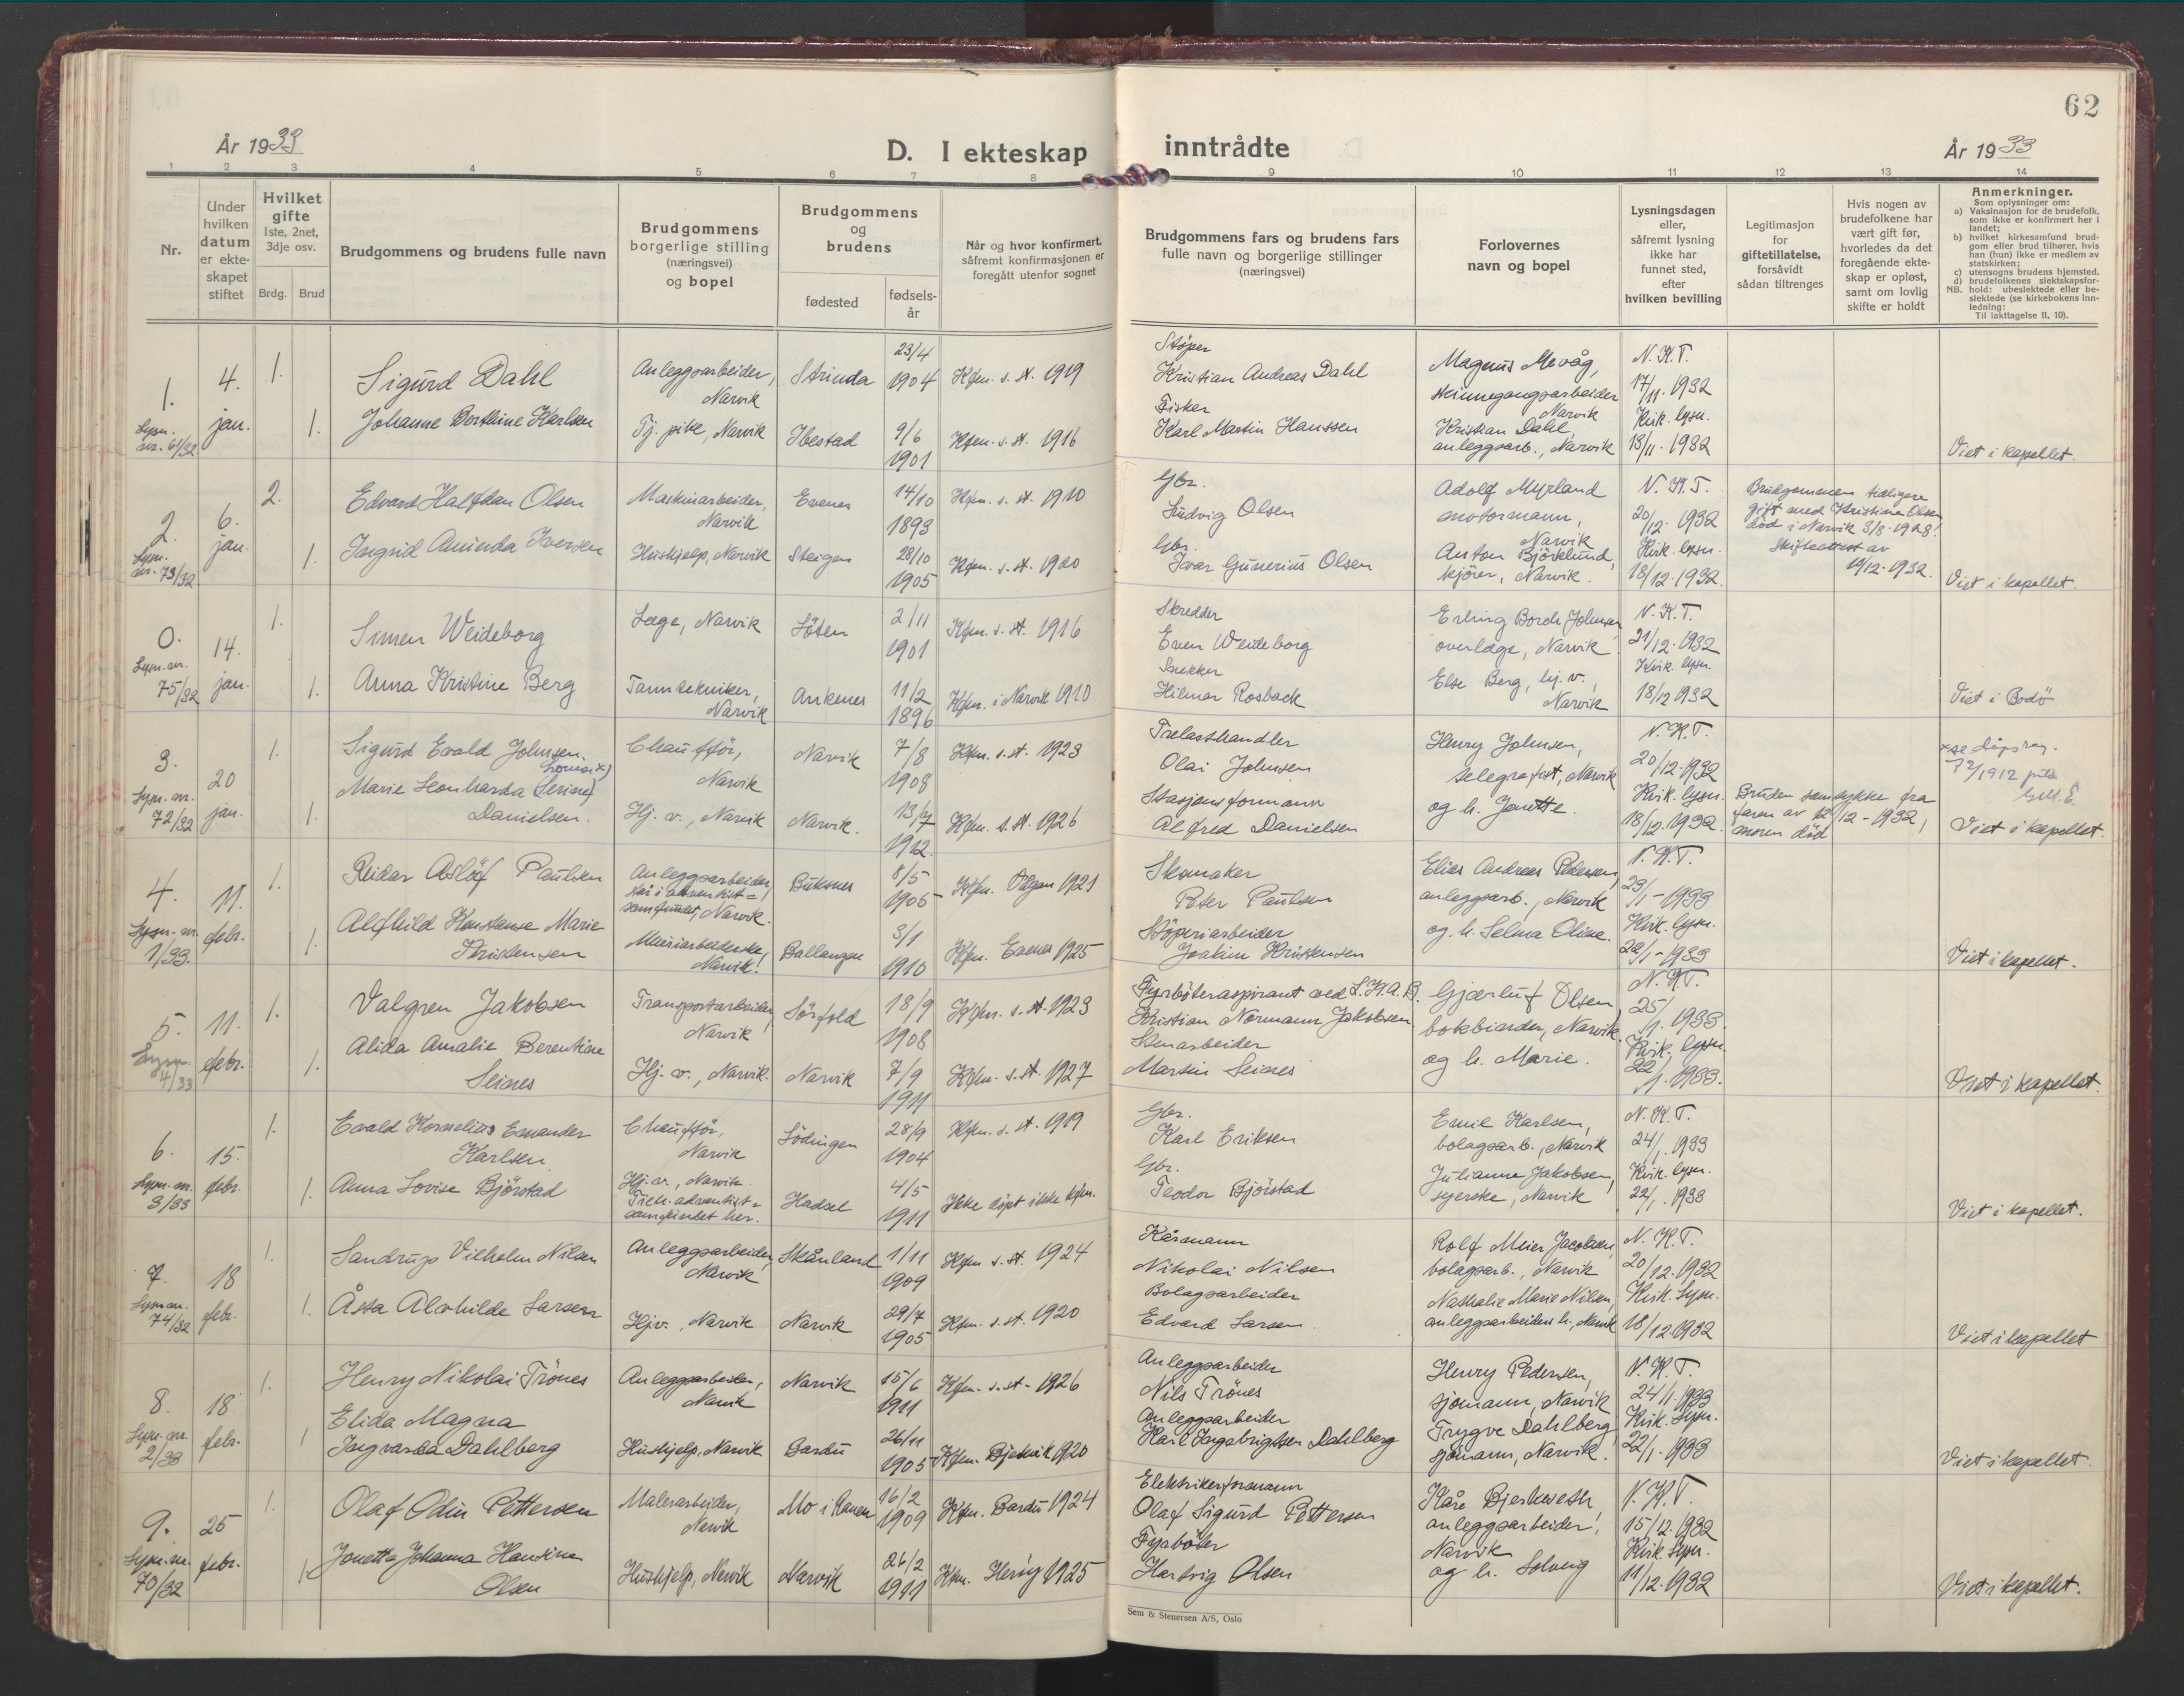 62
År 1933
D. I ekteskap inntrådte
År 1933
1 2 3 4 5 6 7 8 9 10 11 12 13 14
Nr.
Under
hvilken
datum
er ekte-
skapet
stiftet
Hvilket
gifte
1ste, 2net,
3dje osv.
Brdg. Brud
Brudgommens og brudens fulle navn
Brudgommens
borgerlige stilling
(næringsvei)
og bopel
Brudgommens
og
brudens
fødested
fødsels-
år
Når og hvor konfirmert,
såfremt konfirmasjonen er
foregått utenfor sognet
Brudgommens fars og brudens fars
fulle navn og borgerlige stillinger
(næringsvei)
Forlovernes
navn og bopel
Lysningsdagen
eller,
såfremt lysning
ikke har
funnet sted,
efter
hvilken bevilling
Legitimasjon
for
giftetillatelse,
forsåvidt
sådan tiltrenges
Hvis nogen av
brudefolkene har
vært gift før,
hvorledes da det
foregående ekte-
skap er opløst,
samt om lovlig
skifte er holdt
Anmerkninger.
Som oplysninger om:
a) Vaksinasjon for de brudefolk,
som ikke er konfirmert her i
landet;
b) hvilket kirkesamfund brud-
gom eller brud tilhører, hvis
han (hun) ikke er medlem av
statskirken;
c) utensogns brudens hjemsted.
d) brudefolkenes slektskapsfor-
NB. hold: ubeslektede eller be-
slektede (se kirkebokens inn-
ledning:
Til iakttagelse II, 10).
1.
Lysn.
nr. 61/32
4.
jan.
1.
Sigurd Dahl
Anleggsarbeider,
Narvik
Strinda
23/4
1904
Kfm. s. st. 1919
Støper
Kristian Andreas Dahl
Magnus Mevåg,
skinnegangsarbeider
Narvik
N. K. T.
17/11. 1932
1.
Johanne Berthine Karlsen
Tj. pike, Narvik
Ibestad
9/6
1901
Kfm. s. st. 1916
Fisker
Karl Martin Hanssen
Kristian Dahl,
anleggsarb., Narvik
Kirk. lysn.
13/11. 1932
Viet i kapellet.
2.
Lysn.
nr. 73/32
6.
jan.
2.
Edvard Halfdan Olsen
Maskinarbeider,
Narvik
Evenes
14/10
1893
Kfm. s. st. 1910
Gbr.
Ludvig Olsen
Adolf Myrland
motormann,
Narvik
N. K. T.
20/12. 1932
Brudgommen tidligere
gift med Kristine Olsen
død i Narvik 3/8-1928.
Skifteattest av
19/12-1932.
1.
Ingrid Aminda Iversen
Hushjelp, Narvik
Steigen
28/10
1905
Kfm. s. st. 1920
Gbr.
Ivar Gunerius Olsen
Anton Bjørklund,
kjører, Narvik.
Kirk. lysn.
18/12. 1932
Viet i kapellet.
0.
Lysn. nr.
75/32
14.
jan.
1.
Simen Weideborg
Læge, Narvik
Løten
2/11
1901
Kfm. s. st. 1916
Skredder
Even Weideborg
Erling Borch Johnsen
overlæge, Narvik
N. K. T.
21/12. 1932
1.
Anna Kristine Berg
Tanntekniker,
Narvik
Ankenes
11/2
1896
Kfm. i Narvik 1910
Snekker
Hilmar Rosback
Else Berg, hj. v.,
Narvik
Kirk. lysn.
18/12 1932
Viet i Bodø
3.
Lysn. nr.
72/32
20
jan.
1.
Sigurd Evald Johnsen.
Chauffør,
Narvik
Narvik
7/8
1908
Kfm. s. st. 1923
Trelasthandler
Olai Johnsen
Henry Johnsen,
telegrafist, Narvik
N. K. T.
20/12. 1932
1.
Lovise x)
Marie Leonharda (Serine)
Danielsen.
Hj. v., Narvik
Narvik.
13/7
1912.
Kfm. s. st. 1926
Stasjonsformann
Alfred Danielsen
og h. Jonette.
Kirk. lysn.
18/12. 1932.
Bruden samtykke fra
faren av 12/12-1932,
moren død
Viet i kapellet.
4.
Lysn. nr.
1/33.
11.
febr.
1.
Reidar Asløf Paulsen
Anleggsarbeider,
Narvik.
Buksnes
8/5
1905
1921
Skomaker
Peter Paulsen
Elias Andreas Pedersen,
anleggsarb., Narvik
N. K. T.
23/1-1933
1.
Alfhild Konstanse Marie
Kristensen
Meieriarbeiderske,
Narvik.
Ballangen
3/1
1910
Kfm. Evenes 1925
Støperiarbeider
Joakim Kristensen
og h. Selma Oline.
Kirk. lysn.
22/1-1933
Viet i kapellet.
5.
Lysn.
4/33
11.
febr.
1.
Valgren Jakobsen
Transportarbeider,
Narvik
Sørfold
18/9
1908
Kfm. s. st. 1923
Fyrbøteraspirant ved L.K.A.B.
Kristian Normann Jakobsen
Gjærluf Olsen
bokbinder, Narvik,
N. K. T.
25/1. 1933.
1.
Alida Amalie Berentine
Seines
Hj. v., Narvik.
Narvik
7/9
1911
Kfm. s. st. 1927
Stenarbeider
Martin Seines
og h. Marie.
Kirk. lysn.
22/1. 1933.
Viet i kapellet.
6.
Lysn. nr.
3/33
15.
febr.
1.
Evald Kornelius Emander
Karlsen
Chauffør,
Narvik
Lødingen
28/9
1904
Kfm. s. st. 1919
Gbr.
Karl Eriksen
Emil Karlsen,
bolagsarb., Narvik
N. K. T.
24/1. 1933
1.
Anna Lovise Bjørstad
Hj. v., Narvik.
Tilh. adventist-
samfundet her.
Hadsel
4/5
1911
Ikke døpt ikke kfm.
Gbr.
Teodor Bjørstad
Julianne Jakobsen,
syerske, Narvik
Kirk. lysn.
22/1. 1933
Viet i kapellet.
7.
Lysn. nr.
74/32
18
febr.
1.
Sandrup Vilhelm Nilsen
Anleggsarbeider,
Narvik
Skånland
1/11
1909
Kfm s. st. 1924
Kårmann
Nikolai Nilsen
Rolf Meier Jacobsen,
bolagsarb., Narvik
N. K. T.
20/12. 1932
1.
Åsta Alvhilde Larsen
Hj.v., Narvik
Narvik
29/7
1905
Kfm. s. st. 1920
Bolagsarbeider
Edvard Larsen.
Nathalie Marie Nilsen,
anleggsarbeiders h., Narvik
Kirk. lysn.
18/12. 1932
Viet i kapellet
8.
Lysn. nr.
2/33
18
febr.
1.
Henry Nikolai Trönes
Anleggsarbeider,
Narvik
Narvik
15/6
1911
Kfm. s. st. 1926
Anleggsarbeider
Nils Trönes
Henry Pedersen,
sjømann, Narvik
N. K. T.
24/1. 1933
1
Elida Magna
Ingvarda Dahlberg
Hushjelp, Narvik
Bardu
26/11
1905
Kfm. Bjerkvik 1920
Anleggsarbeider
Karl Ingebrigtsen Dahlberg
Trygve Dahlberg
sjømann, Narvik.
Kirk. lysn.
22/1. 1933
Viet i kapellet.
9.
Lysn. nr.
70/32
25
febr.
1.
Olaf Odin Pettersen
Malerarbeider,
Narvik
Mo i Ranen
16/2
1909
Kfm. Bardu 1924
Elektrikerformann
Olaf Sigurd Pettersen
Kåre Bjerkvoth,
anleggsarbeider,
Narvik
N. K. T.
15/12. 1932
1.
Jonetta Johanna Hansine
Olsen
Hushjelp, Narvik
Narvik
26/2
1911
Kfm. 1925
Fyrbøter
Hartvig Olsen
og h. Solveig
Kirk. lysn.
11/12. 1932
Viet i kapellet.
Sem & Stenersen A/S, Oslo